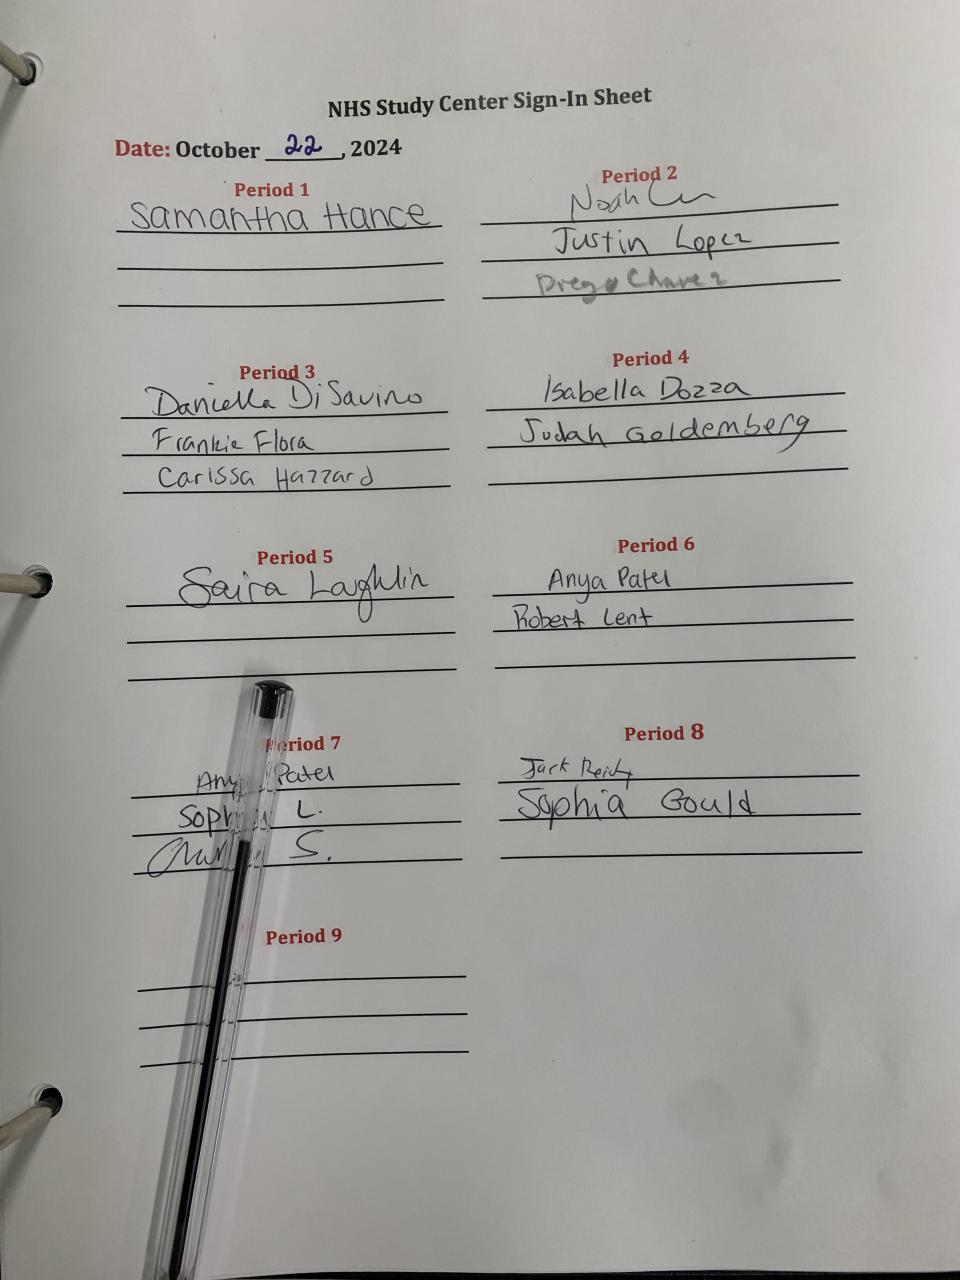 NHS Study Center Sign-In Sheet
Date: October 22, 2024
Period 1
Samantha Hance
Period 2
Noah
Justin Lopez
Chavez
Period 3
Daniella DiSavino
Frankie Flora
Carissa Hazzard
Period 4
Isabella Dozza
Judah Goldemberg
Period 5
Saira Laghlin
Period 6
Anya Patel
Robert Lent
Period 7
Patel
L.
S.
Period 8
Jack
Sophia Gould
Period 9